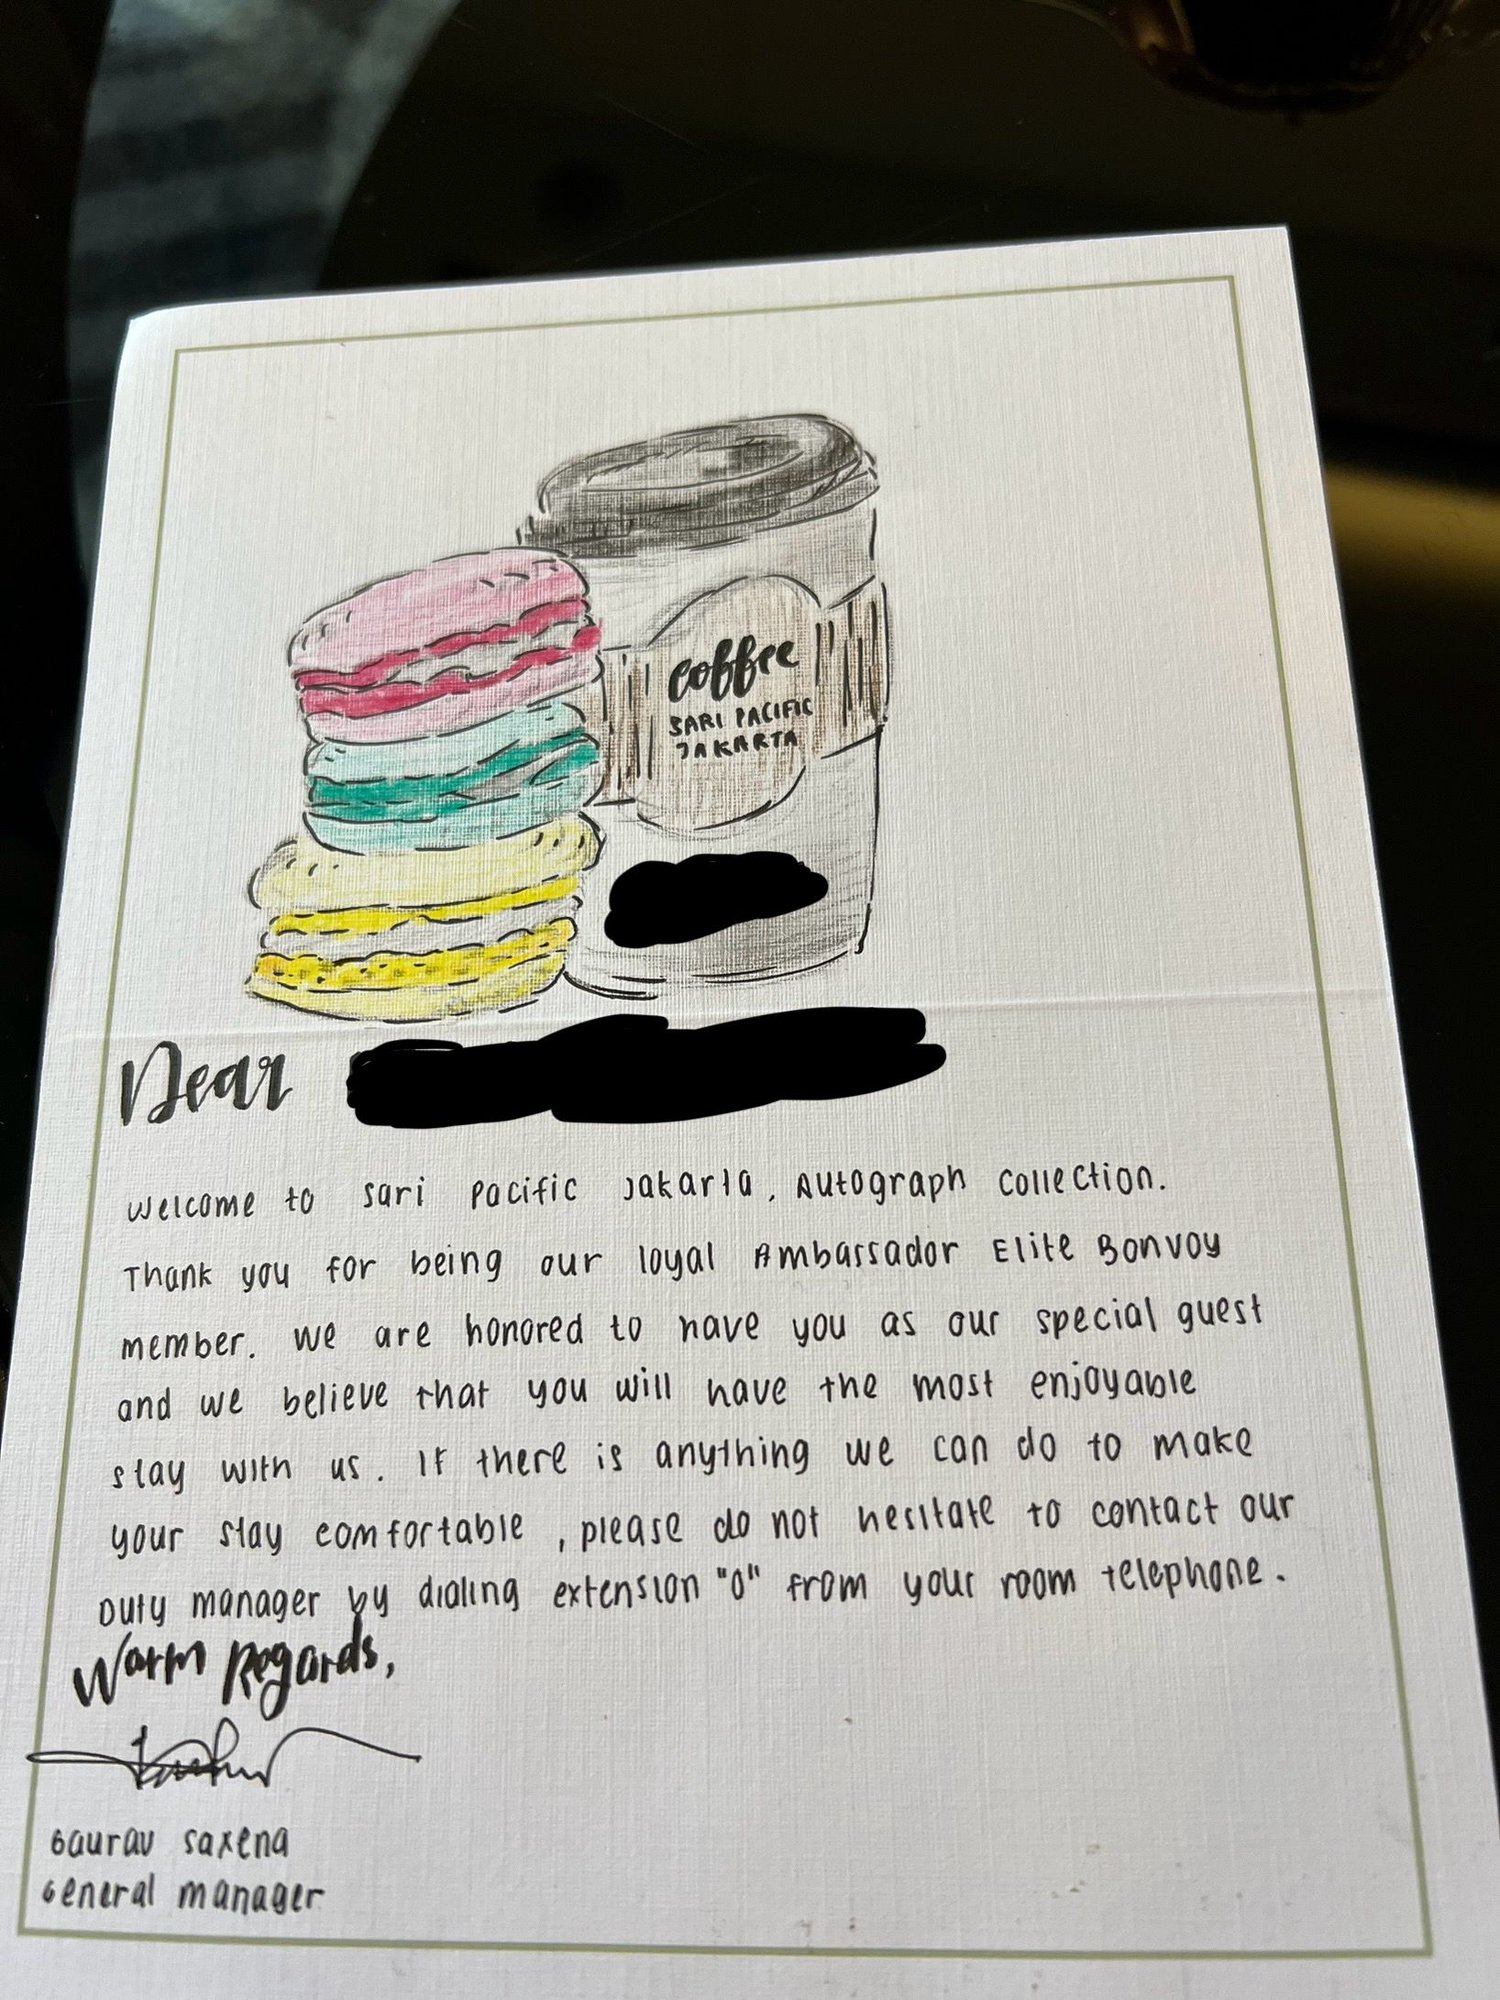 coffee
SARI PACIFIC
JAKARTA
Dear
Welcome to Sari Pacific Jakarta, Autograph Collection.
Thank you for being our loyal Ambassador Elite Bonvoy
member. We are honored to have you as our special guest
and we believe that you will have the most enjoyable
stay with us. If there is anything we can do to make
your stay comfortable, please do not hesitate to contact our
Duty manager by dialing extension "0" from your room telephone.
Warm Regards,
Gaurav Saxena
General manager